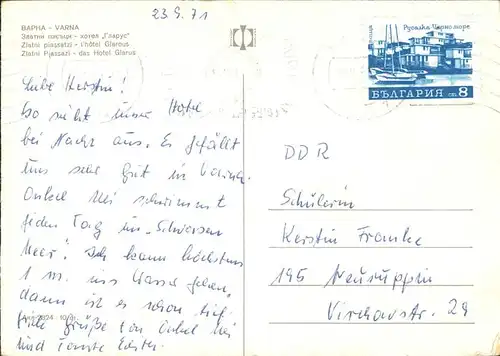 23.9.71
ВАРНА - VARNA
Златни пясъци - хотел "Гларус"
Zlatni piassatzi - l'hôtel Glarous
Zlatni Pjassazi - das Hotel Glarus
Русалка Черно море
БЪЛГАРИЯ ст. 8
Liebe Kerstin!
So sieht unser Hotel
bei Nacht aus. Es gefällt
uns sehr gut in Varna.
Onkel Hei schwimmt
jeden Tag im "Schwarzen
Meer". Ich kann höchstens
1 m. ins Wasser gehen,
dann ist es schon tief.
Viele Grüße von Onkel Hei
und Tante Ester.
DDR
Schülerin
Kerstin Franke
195 Neuruppin
Virchowstr. 29